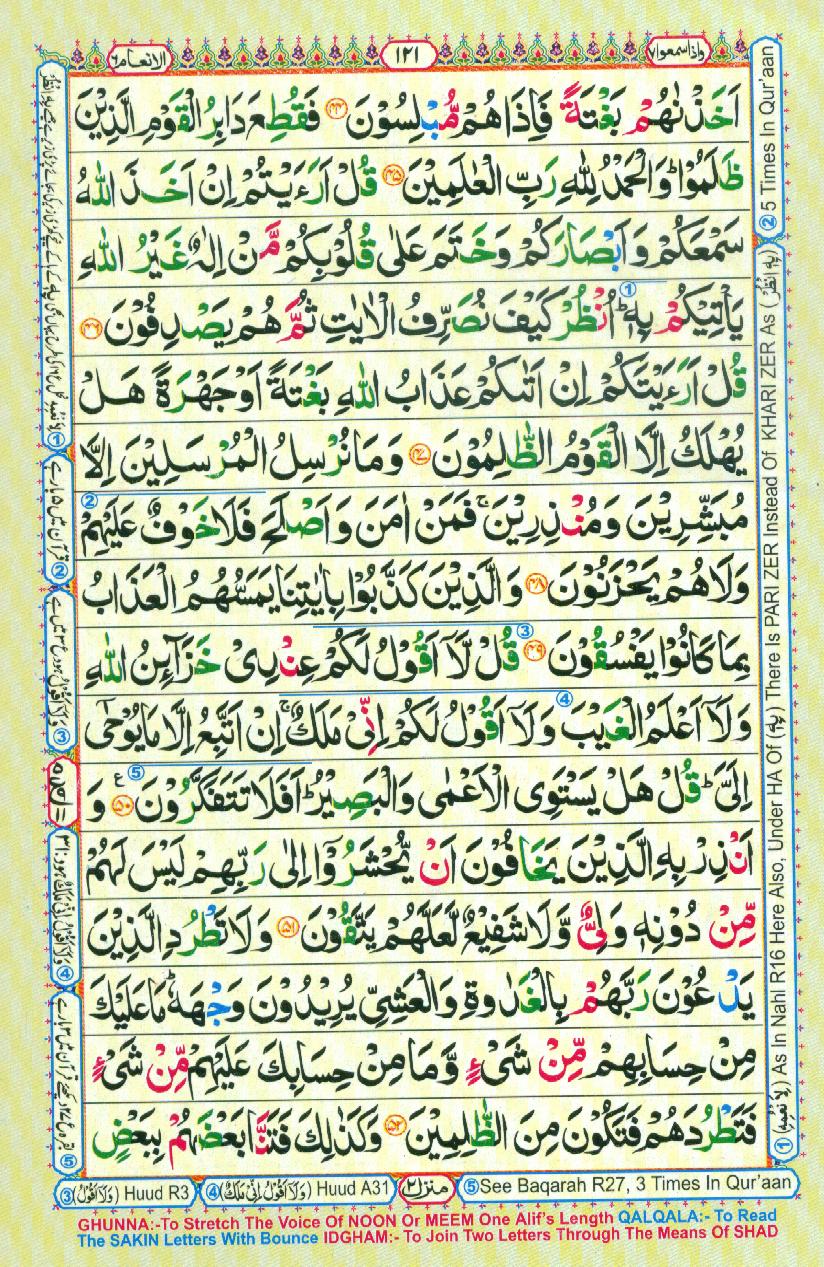 الانعام ٦
١٢١
واذاسمعوا ٧
اَخَذْنٰهُمْ بَغْتَةً فَاِذَا هُمْ مُّبْلِسُوْنَ ﴿۴۴﴾ فَقُطِعَ دَابِرُ الْقَوْمِ الَّذِيْنَ
ظَلَمُوْا ؕ وَالْحَمْدُ لِلّٰهِ رَبِّ الْعٰلَمِيْنَ ﴿۴۵﴾ قُلْ اَرَءَيْتُمْ اِنْ اَخَذَ اللّٰهُ
سَمْعَكُمْ وَاَبْصَارَكُمْ وَخَتَمَ عَلٰى قُلُوْبِكُمْ مَّنْ اِلٰهٌ غَيْرُ اللّٰهِ
يَاْتِيْكُمْ بِهٖ ؕ اُنْظُرْ كَيْفَ نُصَرِّفُ الْاٰيٰتِ ثُمَّ هُمْ يَصْدِفُوْنَ ﴿۴۶﴾
قُلْ اَرَءَيْتَكُمْ اِنْ اَتٰىكُمْ عَذَابُ اللّٰهِ بَغْتَةً اَوْ جَهْرَةً هَلْ
يُهْلَكُ اِلَّا الْقَوْمُ الظّٰلِمُوْنَ ﴿۴۷﴾ وَمَا نُرْسِلُ الْمُرْسَلِيْنَ اِلَّا
مُبَشِّرِيْنَ وَمُنْذِرِيْنَ ۚ فَمَنْ اٰمَنَ وَاَصْلَحَ فَلَا خَوْفٌ عَلَيْهِمْ
وَلَا هُمْ يَحْزَنُوْنَ ﴿۴۸﴾ وَالَّذِيْنَ كَذَّبُوْا بِاٰيٰتِنَا يَمَسُّهُمُ الْعَذَابُ
بِمَا كَانُوْا يَفْسُقُوْنَ ﴿۴۹﴾ قُلْ لَّاۤ اَقُوْلُ لَكُمْ عِنْدِىْ خَزَآئِنُ اللّٰهِ
وَلَاۤ اَعْلَمُ الْغَيْبَ وَلَاۤ اَقُوْلُ لَكُمْ اِنِّىْ مَلَكٌ ۚ اِنْ اَتَّبِعُ اِلَّا مَا يُوْحٰٓى
اِلَىَّ ؕ قُلْ هَلْ يَسْتَوِى الْاَعْمٰى وَالْبَصِيْرُ ؕ اَفَلَا تَتَفَكَّرُوْنَ ﴿۵۰﴾ ع وَ
اَنْذِرْ بِهِ الَّذِيْنَ يَخَافُوْنَ اَنْ يُّحْشَرُوْۤا اِلٰى رَبِّهِمْ لَيْسَ لَهُمْ
مِّنْ دُوْنِهٖ وَلِىٌّ وَّلَا شَفِيْعٌ لَّعَلَّهُمْ يَتَّقُوْنَ ﴿۵۱﴾ وَلَا تَطْرُدِ الَّذِيْنَ
يَدْعُوْنَ رَبَّهُمْ بِالْغَدٰوةِ وَالْعَشِىِّ يُرِيْدُوْنَ وَجْهَهٗ ؕ مَا عَلَيْكَ
مِنْ حِسَابِهِمْ مِّنْ شَىْءٍ وَّمَا مِنْ حِسَابِكَ عَلَيْهِمْ مِّنْ شَىْءٍ
فَتَطْرُدَهُمْ فَتَكُوْنَ مِنَ الظّٰلِمِيْنَ ﴿۵۲﴾ وَكَذٰلِكَ فَتَنَّا بَعْضَهُمْ بِبَعْضٍ
② 5 Times In Qur'aan
① As In Nahl R16 Here Also, Under HA Of (بِهِ) There Is PARI ZER Instead Of KHARI ZER As (بِهِ انْظُرْ)
② قرآن میں ۵ بارہے
③ (وَلَا اَقُوْلُ) Huud R3
④ (وَلَا اَقُوْلُ اِنِّىْ مَلَكٌ) Huud A31
منزل ٢
⑤ See Baqarah R27, 3 Times In Qur'aan
GHUNNA:-To Stretch The Voice Of NOON Or MEEM One Alif's Length QALQALA:- To Read
The SAKIN Letters With Bounce IDGHAM:- To Join Two Letters Through The Means Of SHAD